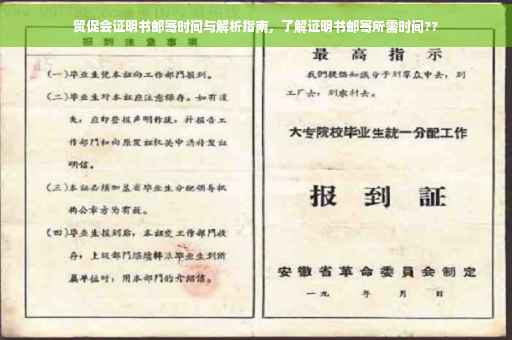 贸促会证明书邮寄时间与解析指南，了解证明书邮寄所需时间??
报到注意事项
(一)毕业生凭本证向工作部门报到。
(二)毕业生对本证应注意保存。如有遗
失，应即登报声明作废，并报告工
作部门和向原发证机关申请补发证
明信。
(三)本证必须加盖省毕业生分配领导机
构公章方为有效。
(四)毕业生报到后，本证交工作部门收
存；上级部门继续转派毕业生到所
属单位时，用本部门的介绍信。
最高指示
我们提倡知识分子到群众中去，到
工厂去，到农村去。
大专院校毕业生统一分配工作
报到証
安徽省革命委員会制定
一九 年 月 日